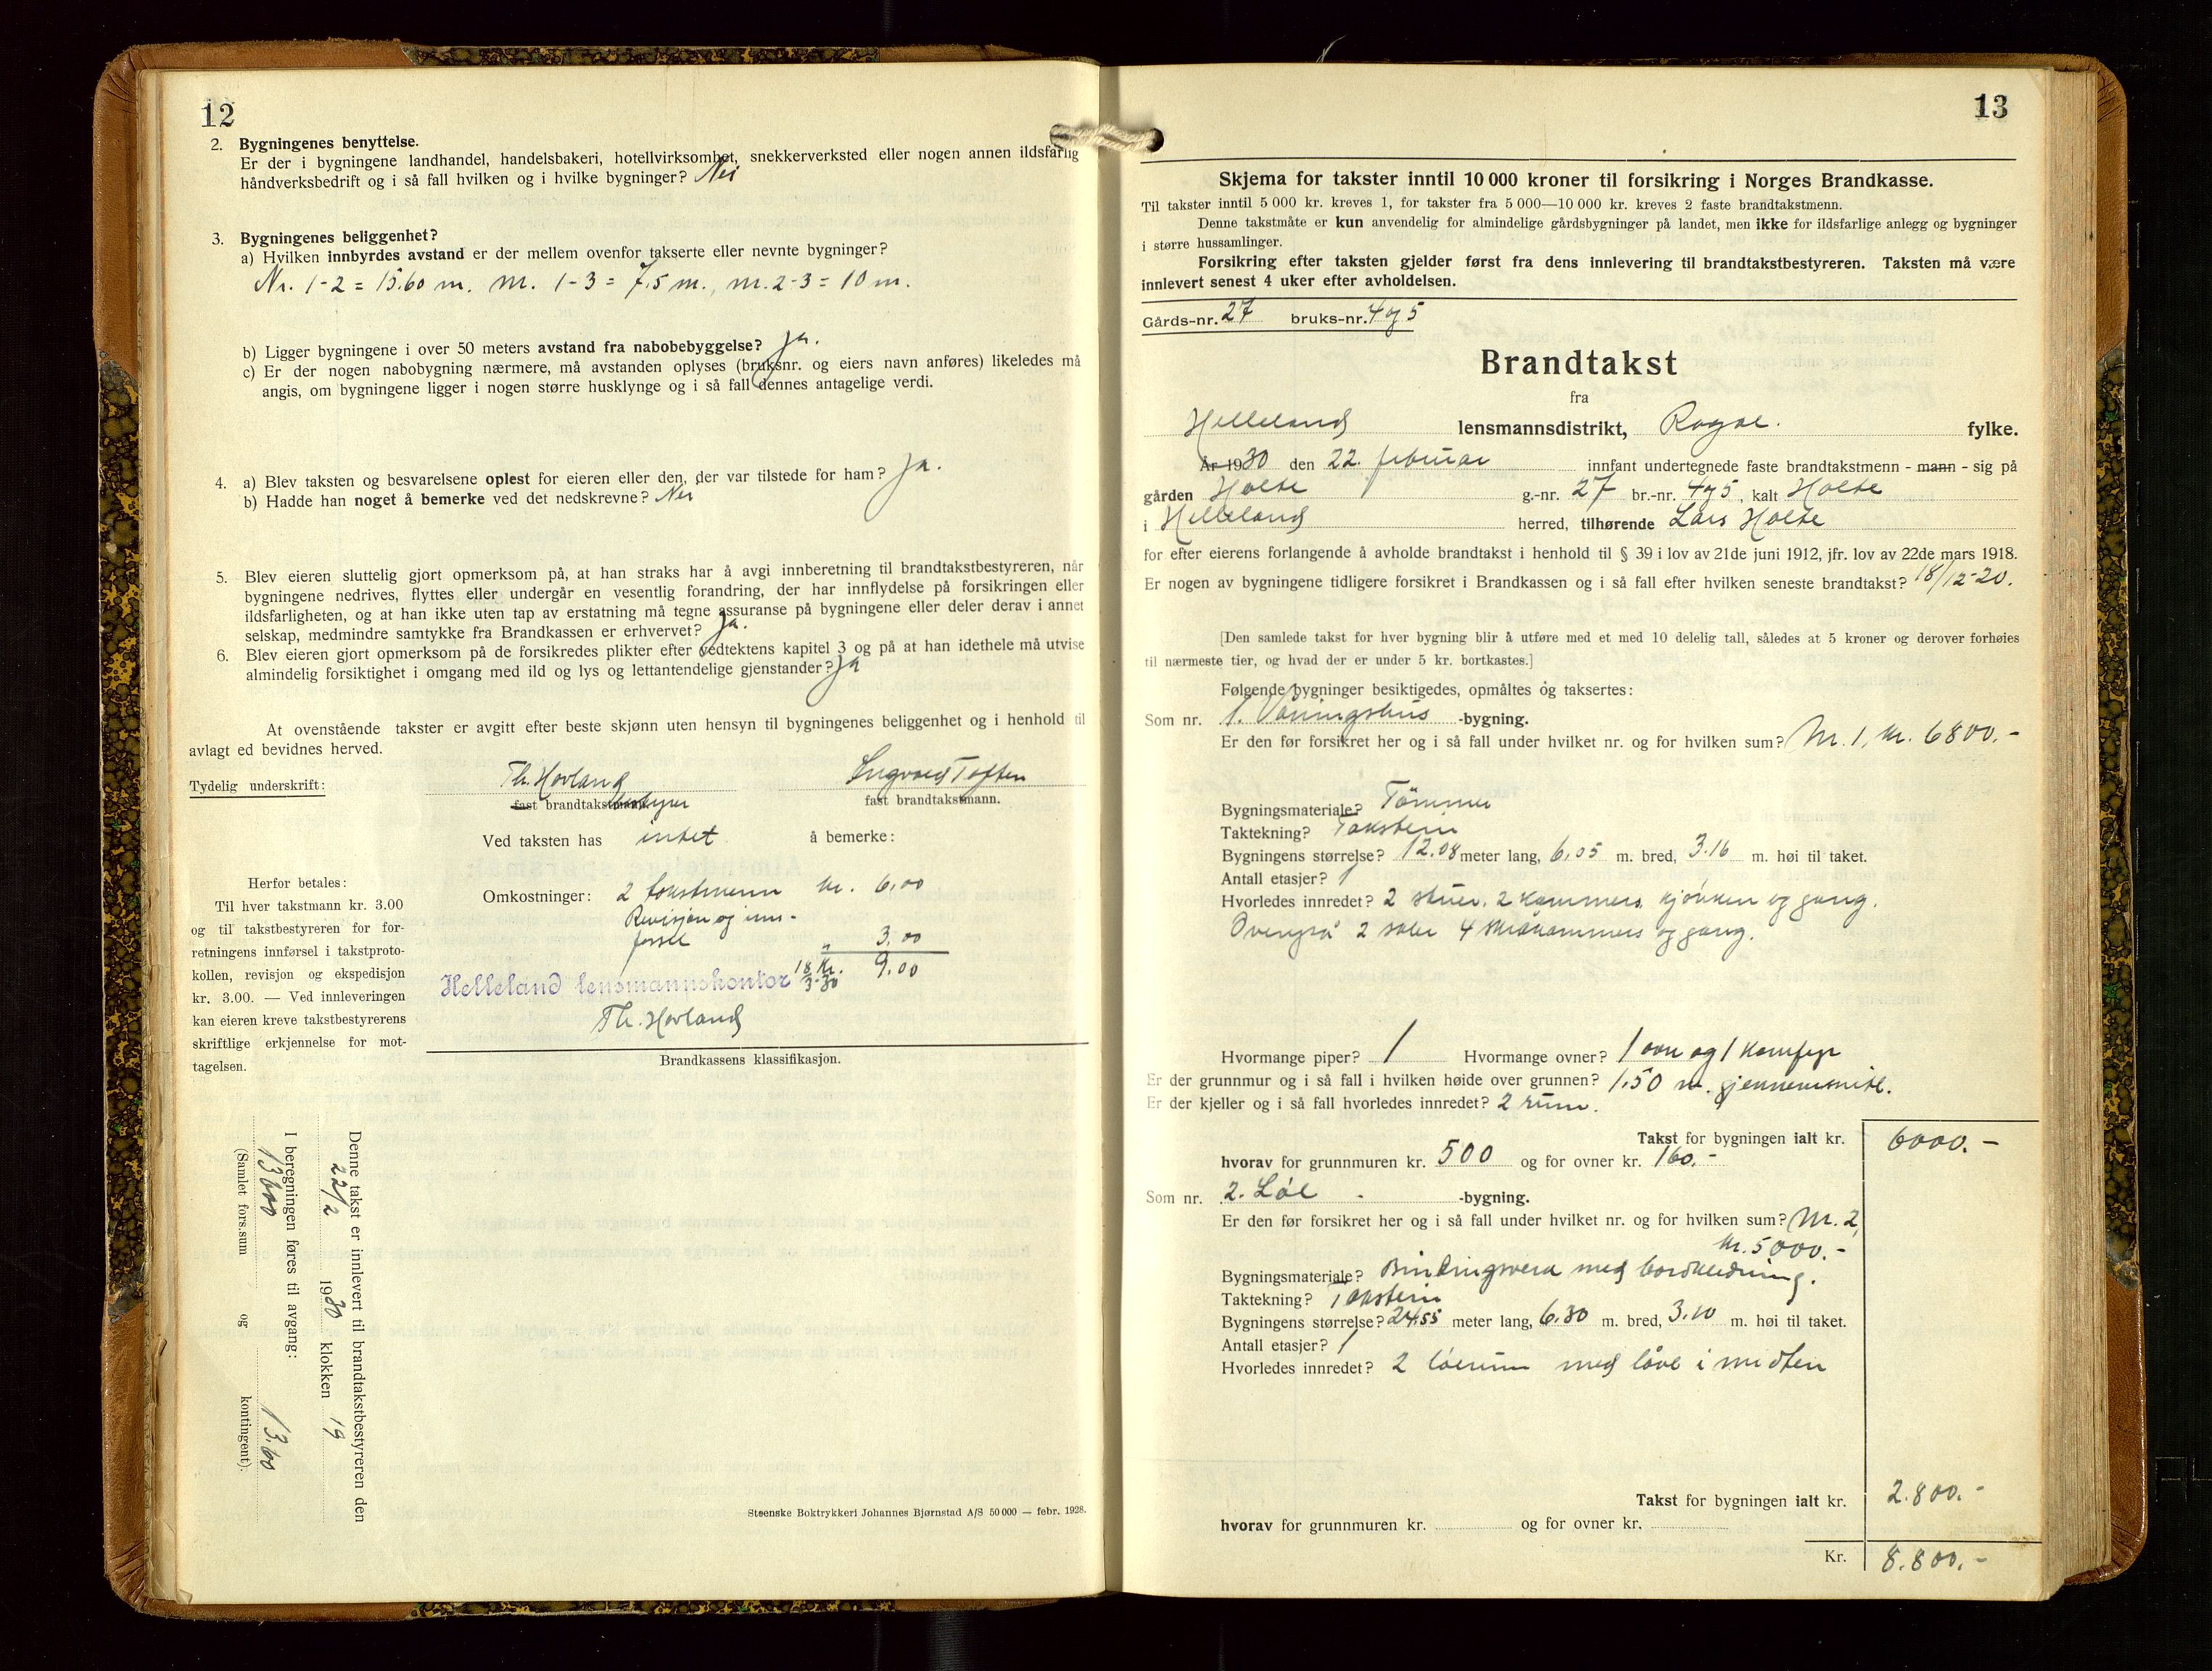 12
2. Bygningenes benyttelse.
Er der i bygningene landhandel, handelsbakeri, hotellvirksomhet, snekkerverksted eller nogen annen ildsfarlig
håndverksbedrift og i så fall hvilken og i hvilke bygninger? Nei
3. Bygningenes beliggenhet?
a) Hvilken innbyrdes avstand er der mellem ovenfor takserte eller nevnte bygninger?
Nr. 1-2 = 15.60 m. nr. 1-3 = 7.5 m., nr. 2-3 = 10 m.
b) Ligger bygningene i over 50 meters avstand fra nabobebyggelse? ja.
c) Er der nogen nabobygning nærmere, må avstanden oplyses (bruksnr. og eiers navn anføres) likeledes må
angis, om bygningene ligger i nogen større husklynge og i så fall dennes antagelige verdi.
4. a) Blev taksten og besvarelsene oplest for eieren eller den, der var tilstede for ham? ja.
b) Hadde han noget å bemerke ved det nedskrevne? Nei
5. Blev eieren sluttelig gjort opmerksom på, at han straks har å avgi innberetning til brandtakstbestyreren, når
bygningene nedrives, flyttes eller undergår en vesentlig forandring, der har innflydelse på forsikringen eller
ildsfarligheten, og at han ikke uten tap av erstatning må tegne assuranse på bygningene eller deler derav i annet
selskap, medmindre samtykke fra Brandkassen er erhvervet? ja.
6. Blev eieren gjort opmerksom på de forsikredes plikter efter vedtektens kapitel 3 og på at han idethele må utvise
almindelig forsiktighet i omgang med ild og lys og lettantendelige gjenstander? ja
At ovenstående takster er avgitt efter beste skjønn uten hensyn til bygningenes beliggenhet og i henhold til
avlagt ed bevidnes herved.
Tydelig underskrift: Th. Hovland Ingvald Toften
fast brandtakstmann bestyrer fast brandtakstmann.
Ved taksten has intet å bemerke:
Omkostninger: 2 takstmenn kr. 6,00
Revisjon og inn-
førsel " 3.00
Kr. 9.00
Helleland lensmannskontor 18/3-30
Th. Hovland
Herfor betales:
Til hver takstmann kr. 3.00
og til takstbestyreren for for-
retningens innførsel i takstproto-
kollen, revisjon og ekspedisjon
kr. 3.00. — Ved innleveringen
kan eieren kreve takstbestyrerens
skriftlige erkjennelse for mot-
tagelsen.
Brandkassens klassifikasjon.
Denne takst er innlevert til brandtakstbestyreren den
22/2 1930 klokken 19
I beregningen føres til avgang:
13600 13.60
(Samlet fors.sum og kontingent).
Steenske Boktrykkeri Johannes Bjørnstad A/S 50 000 — febr. 1928.
13
Skjema for takster inntil 10 000 kroner til forsikring i Norges Brandkasse.
Til takster inntil 5 000 kr. kreves 1, for takster fra 5 000—10 000 kr. kreves 2 faste brandtakstmenn.
Denne takstmåte er kun anvendelig for almindelige gårdsbygninger på landet, men ikke for ildsfarlige anlegg og bygninger
i større hussamlinger.
Forsikring efter taksten gjelder først fra dens innlevering til brandtakstbestyreren. Taksten må være
innlevert senest 4 uker efter avholdelsen.
Gårds-nr. 27 bruks-nr. 4 og 5
Brandtakst
fra
Helleland lensmannsdistrikt, Rogal. fylke.
År 1930 den 22. februar innfant undertegnede faste brandtakstmenn - mann - sig på
gården Holte g.-nr. 27 br.-nr. 4 og 5, kalt Holte
i Helleland herred, tilhørende Lars Holte
for efter eierens forlangende å avholde brandtakst i henhold til § 39 i lov av 21de juni 1912, jfr. lov av 22de mars 1918.
Er nogen av bygningene tidligere forsikret i Brandkassen og i så fall efter hvilken seneste brandtakst? 18/12-20.
[Den samlede takst for hver bygning blir å utføre med et med 10 delelig tall, således at 5 kroner og derover forhøies
til nærmeste tier, og hvad der er under 5 kr. bortkastes.]
Følgende bygninger besiktigedes, opmåltes og taksertes:
Som nr. 1. Våningshus -bygning.
Er den før forsikret her og i så fall under hvilket nr. og for hvilken sum? Nr. 1, kr. 6800.-
Bygningsmateriale? Tømmer
Taktekning? Takstein
Bygningens størrelse? 12.08 meter lang, 6.05 m. bred, 3.16 m. høi til taket.
Antall etasjer? 1
Hvorledes innredet? 2 stuer, 2 kammers, kjøkken og gang.
Ovenpå 2 saler 4 skråkammers og gang.
Hvormange piper? 1 Hvormange ovner? 1 ovn og 1 komfyr
Er der grunnmur og i så fall i hvilken høide over grunnen? 1,50 m. gjennemsnitl.
Er der kjeller og i så fall hvorledes innredet? 2 rum.
Takst for bygningen ialt kr. 6000.-
hvorav for grunnmuren kr. 500 og for ovner kr. 160.-
Som nr. 2. Løe -bygning.
Er den før forsikret her og i så fall under hvilket nr. og for hvilken sum? Nr. 2,
kr. 5000.-
Bygningsmateriale? Bindingsverk med bordkledning.
Taktekning? Takstein
Bygningens størrelse? 24.55 meter lang, 6.30 m. bred, 3.10 m. høi til taket.
Antall etasjer? 1
Hvorledes innredet? 2 løerum med låve i midten
Takst for bygningen ialt kr. 2.800.-
hvorav for grunnmuren kr. og for ovner kr.
Kr. 8.800.-